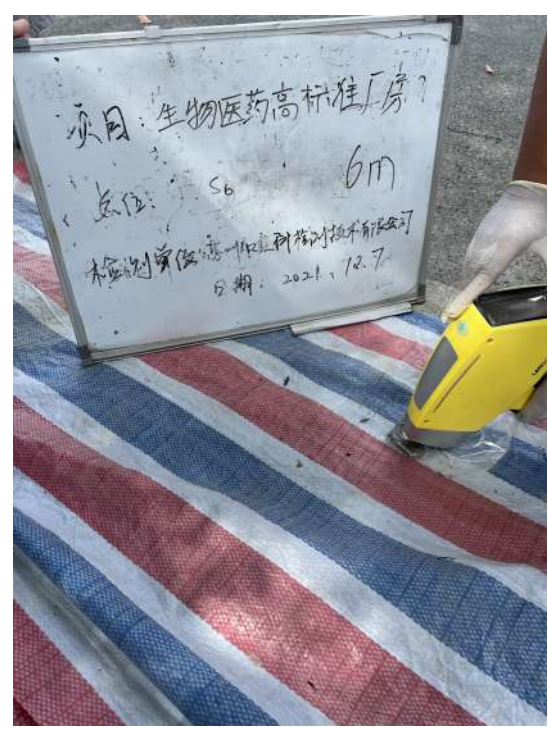 项目:生物医药高标准厂房
点位: S6 6m
检测单位:苏州 科检测技术有限公司
日期: 2021.12.7